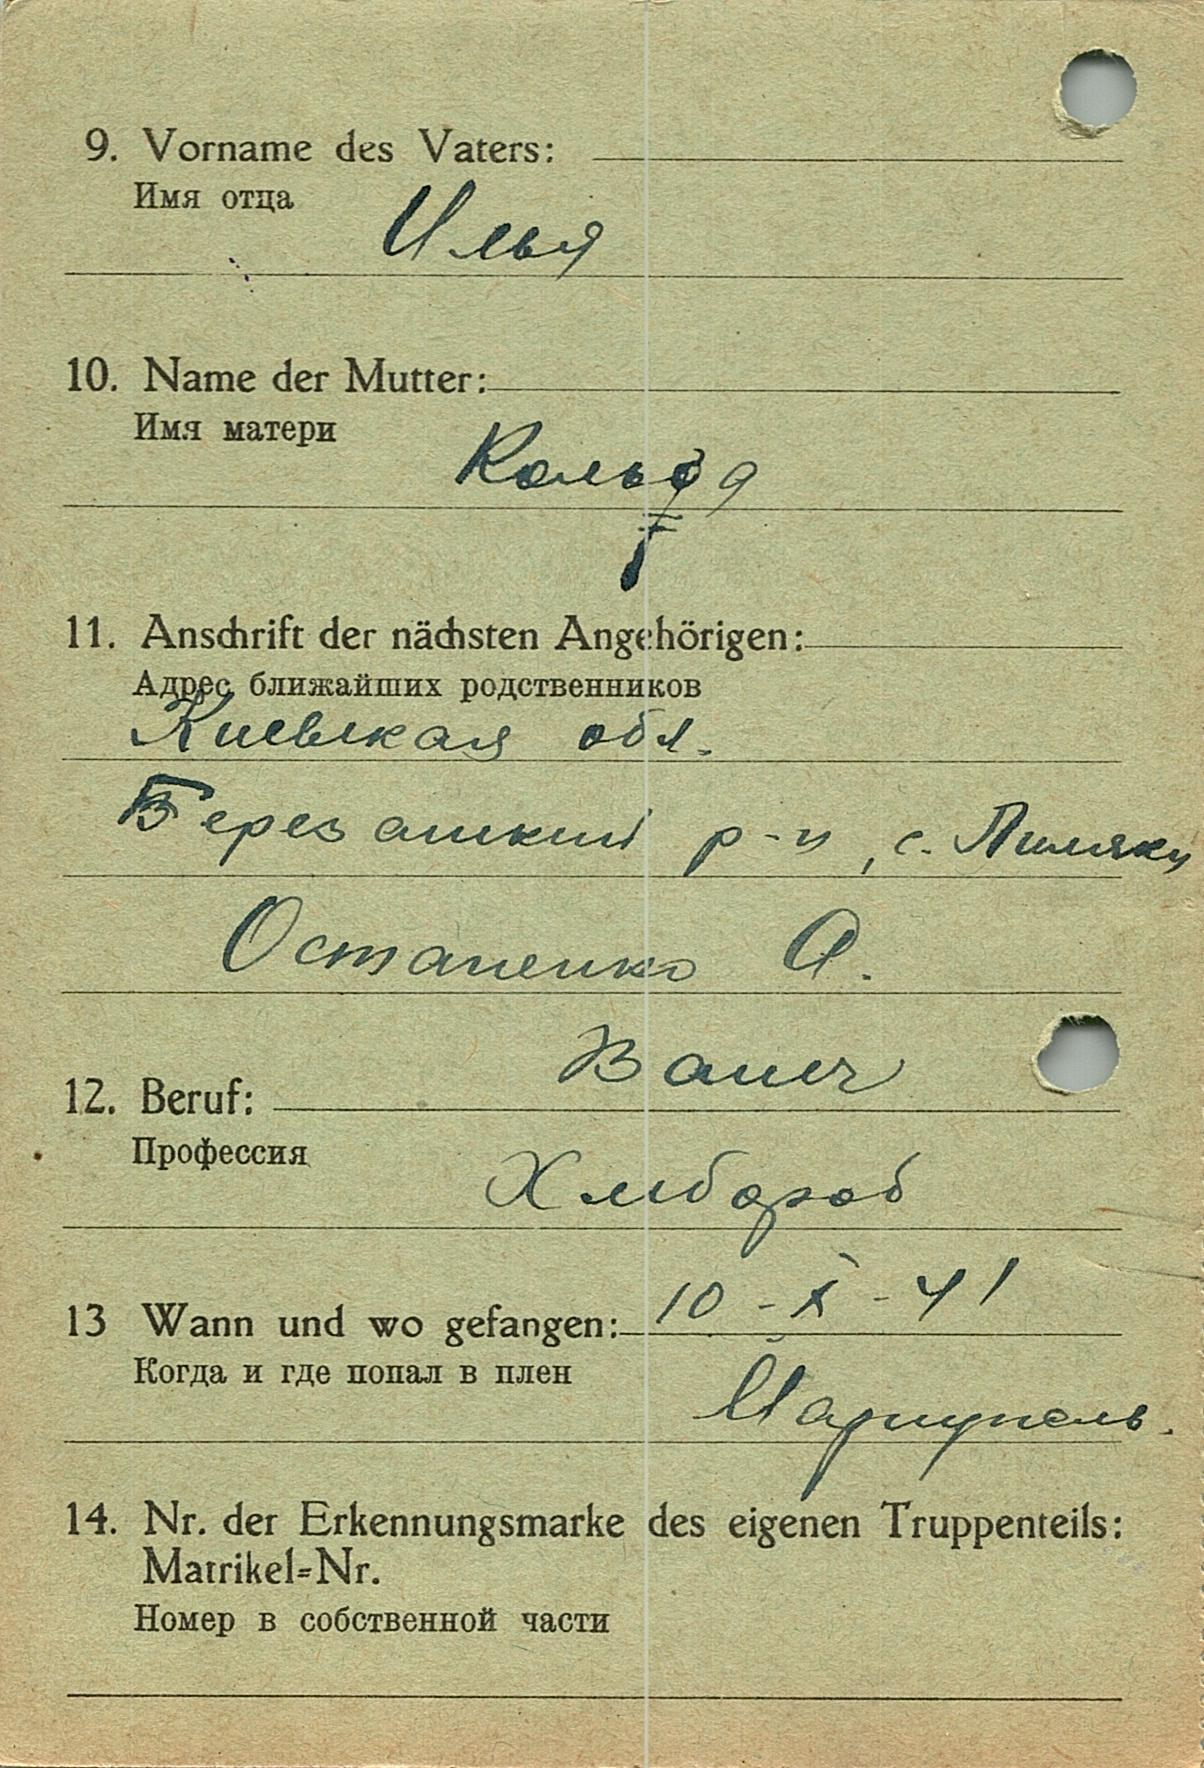 9. Vorname des Vaters:
Имя отца
Илья
10. Name der Mutter:
Имя матери
11. Anschrift der nächsten Angehörigen:
Адрес ближайших родственников
Киевская обл.
Березанский р-н, с. Пилляки
Остапенко А.
Bauer
12. Beruf:
Профессия
Хлебороб
10-X-41
13 Wann und wo gefangen:
Когда и где попал в плен
Мариуполь.
14. Nr. der Erkennungsmarke des eigenen Truppenteils:
Matrikel=Nr.
Номер в собственной части